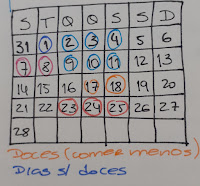 S T Q Q S S D
31 1 2 3 4 5 6
7 8 9 10 11 12 13
14 15 16 17 18 19 20
21 22 23 24 25 26 27
28
Doces (comer menos)
Dias s/ doces